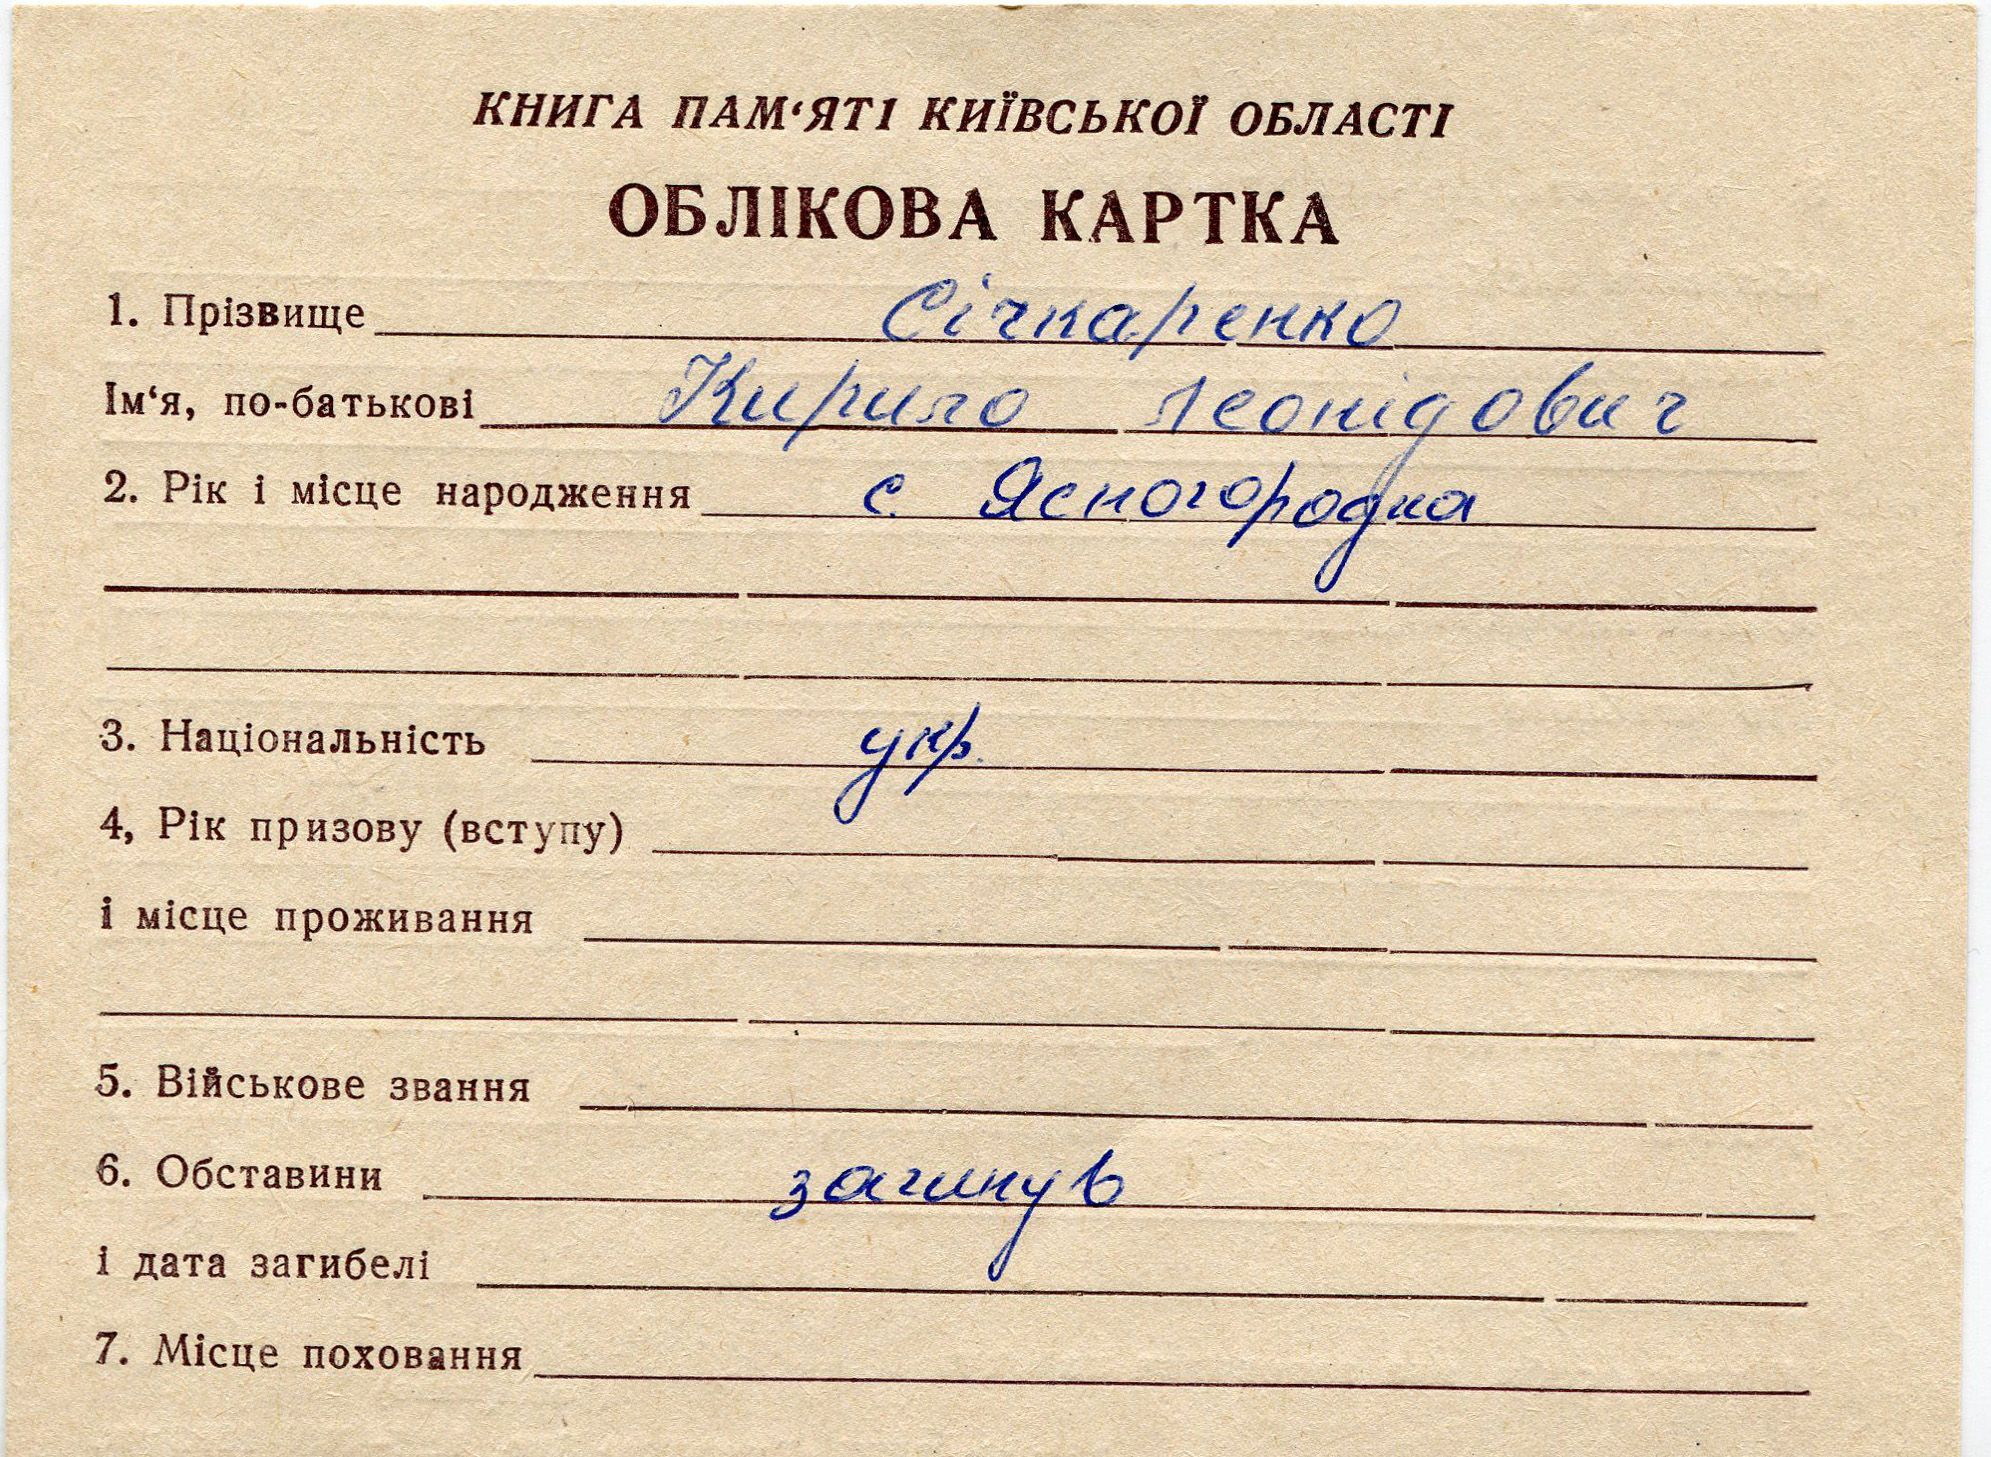 КНИГА ПАМ‘ЯТІ КИЇВСЬКОЇ ОБЛАСТІ
ОБЛІКОВА КАРТКА
1. Прізвище Січкаренко
Ім‘я, по-батькові Кирило Леонідович
2. Рік і місце народження с. Ясногородка
3. Національність укр.
4, Рік призову (вступу)
і місце проживання
5. Військове звання
6. Обставини загинув
і дата загибелі
7. Місце поховання